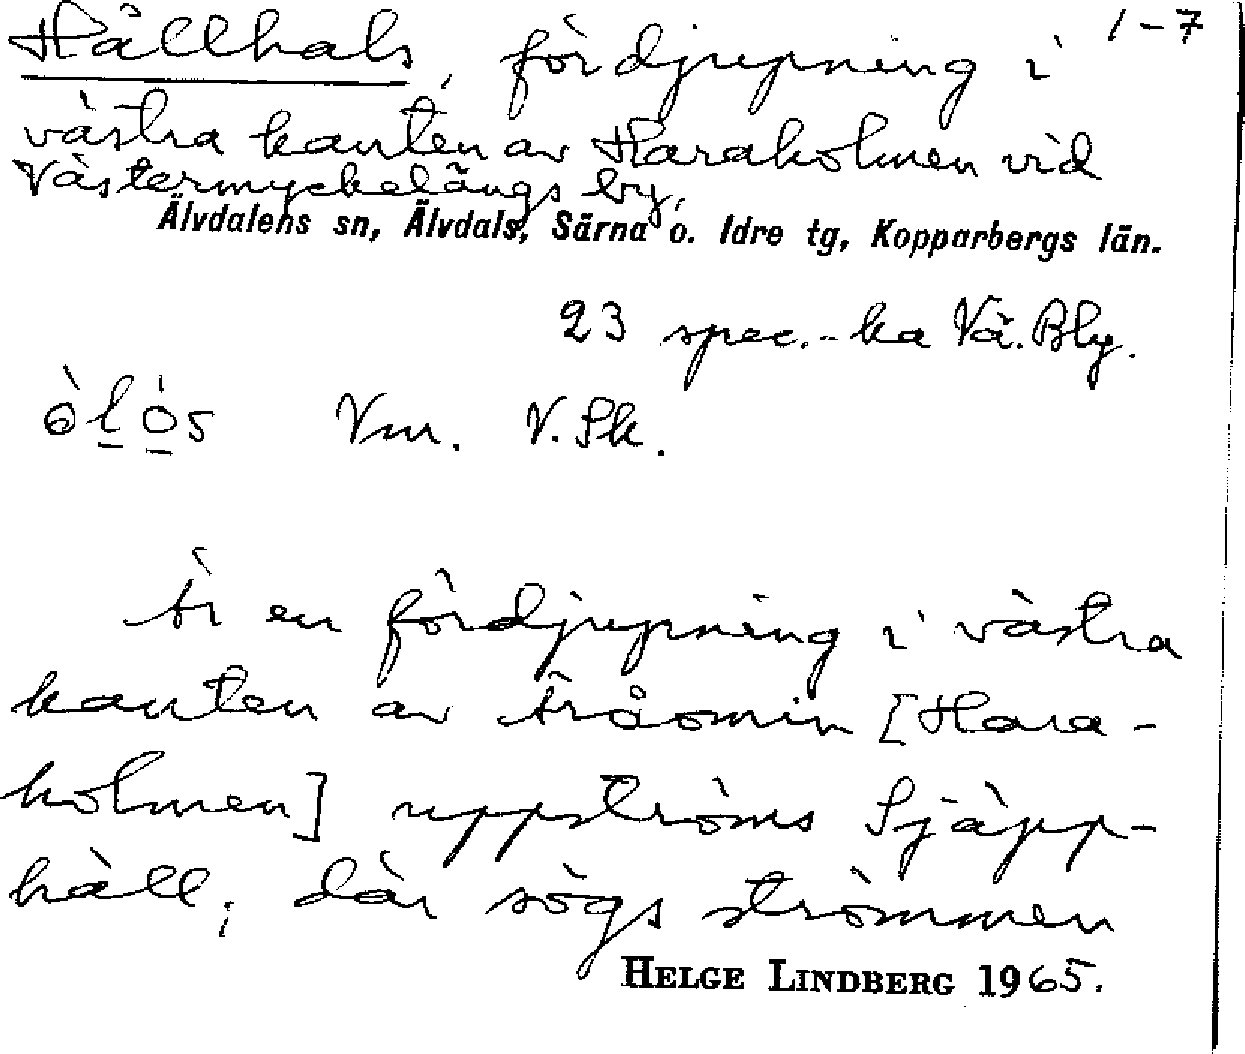 Hällhals, fördjupning i 1-7
västra kanten av Haraholmen vid
Västermyckelängs by,
Älvdalens sn, Älvdals, Särna o. Idre tg, Kopparbergs län.
23 spec.-ka Vä. Bly.
òlòs Vm. V. Sk.
Är en fördjupning i västra
kanten av Aråomin [Hara-
holmen] uppströms Sjäpp-
häll; där sögs strömmen
HELGE LINDBERG 1965.